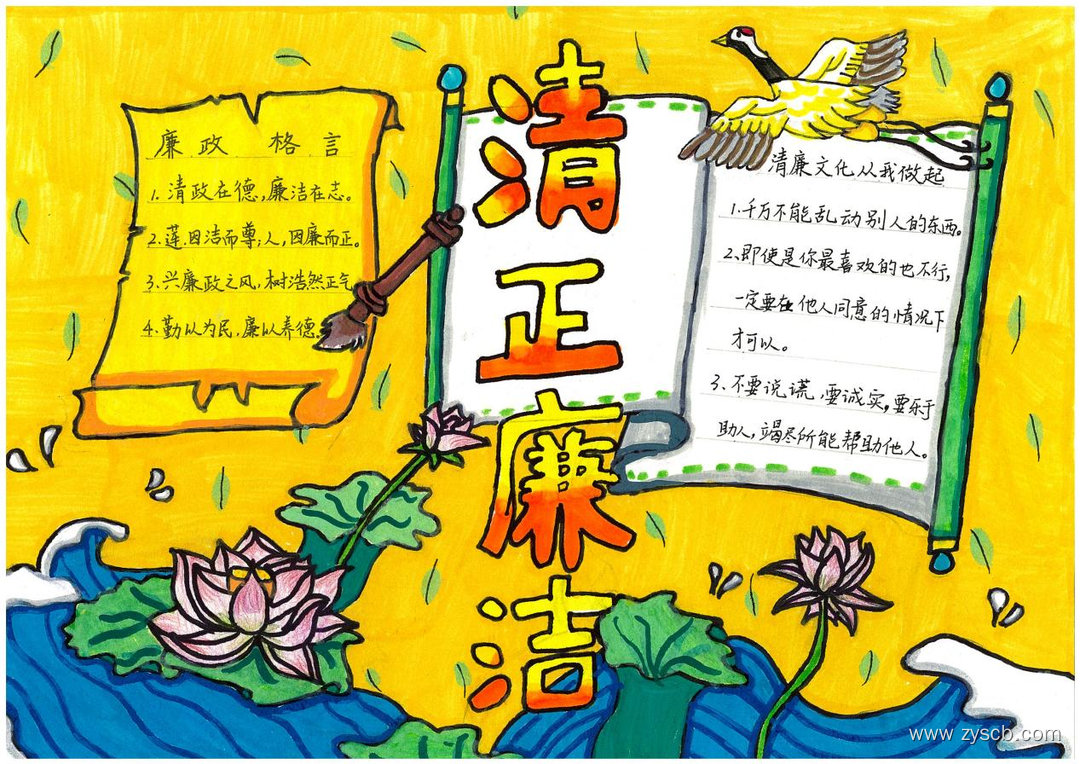 清正廉洁
廉政格言
1.清政在德,廉洁在志。
2.莲因洁而尊;人,因廉而正。
3.兴廉政之风,树浩然正气
4.勤以为民,廉以养德。
清廉文化从我做起
1.千万不能乱动别人的东西。
2.即使是你最喜欢的也不行,
一定要在他人同意的情况下
才可以。
3.不要说谎,要诚实,要乐于
助人,竭尽所能帮助他人。
www.zyscb.com